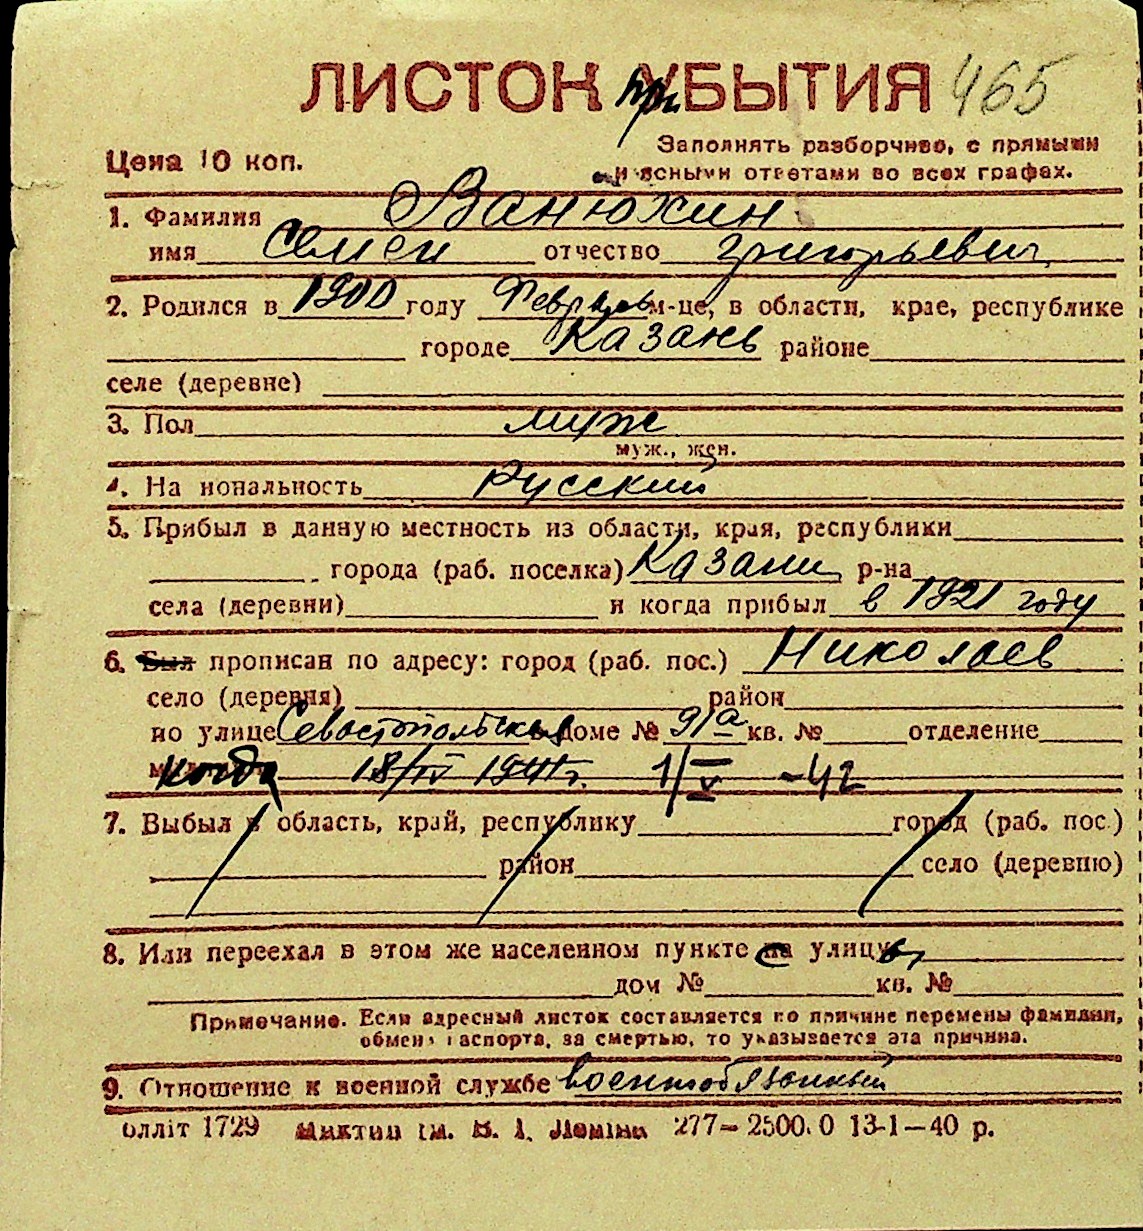 ЛИСТОК при УБЫТИЯ 465
Цена 10 коп.
Заполнять разборчиво, с прямыми
и ясными ответами во всех графах.
1. Фамилия Ванюхин
имя Семен отчество Григорьевич
2. Родился в 1900 году Февраль м-це, в области, крае, республике
городе Казань районе
селе (деревне)
3. Пол муж
муж., жен.
На иональность Русский
5. Прибыл в данную местность из области, края, республики
города (раб. поселка) Казани р-на
села (деревни) и когда прибыл в 1921 году
6. Был прописан по адресу: город (раб. пос.) Николаев
село (деревня) район
по улице Севастопольская в доме № 91а кв. № отделение
когда 18/IV 1941г. 1/V -42
7. Выбыл в область, край, республику город (раб. пос.)
район село (деревню)
8. Или переехал в этом же населенном пункте с улицы
дом № кв. №
Примечание. Если адресный листок составляется по причине перемены фамилии,
обмена паспорта, за смертью, то указывается эта причина.
9. Отношение к военной службе военнообязанный
блліт 1729 ім. В. І. Леніна 277-2500.0 13-1-40 р.